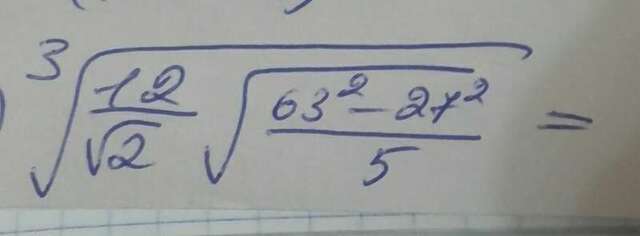 ∛(12/√2 √((63² - 27²)/5)) =